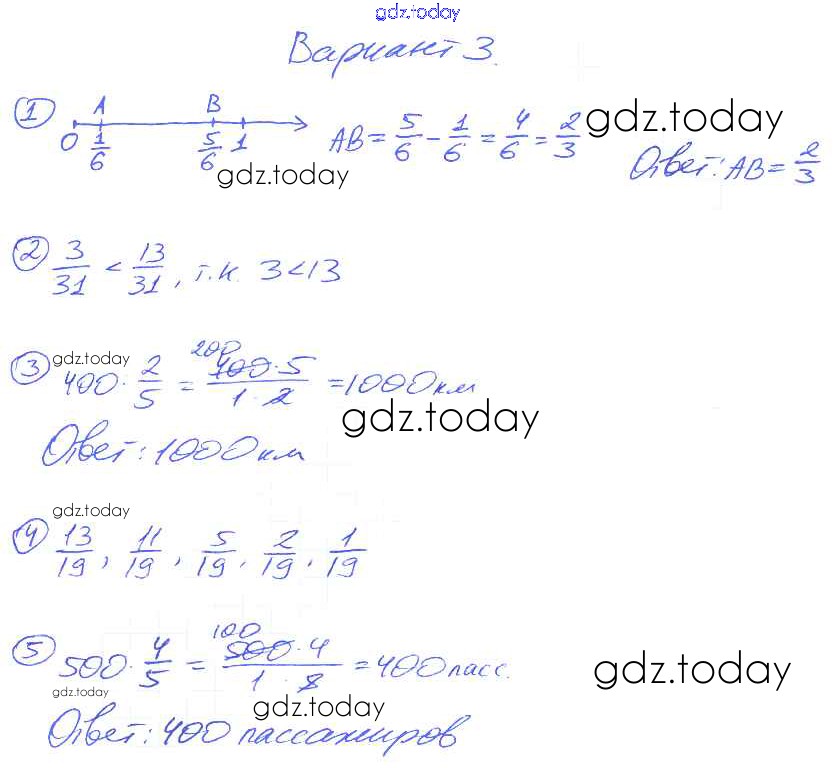 gdz.today
Вариант 3.
1 A B
0 1/6 5/6 1 AB = 5/6 - 1/6 = 4/6 = 2/3 gdz.today
gdz.today Ответ: AB = 2/3
2 3/31 < 13/31, т.к. 3<13
gdz.today 200
3 400 · 2/5 = 400·5/1·2 = 1000км
gdz.today
Ответ: 1000км
gdz.today
4 13/19, 11/19, 5/19, 2/19, 1/19
100
5 500 · 4/5 = 500·4/1·5 = 400 пасс.
gdz.today
gdz.today gdz.today
Ответ: 400 пассажиров